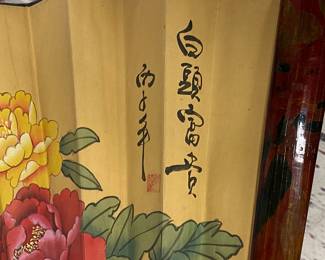 白頭富貴
丙子年